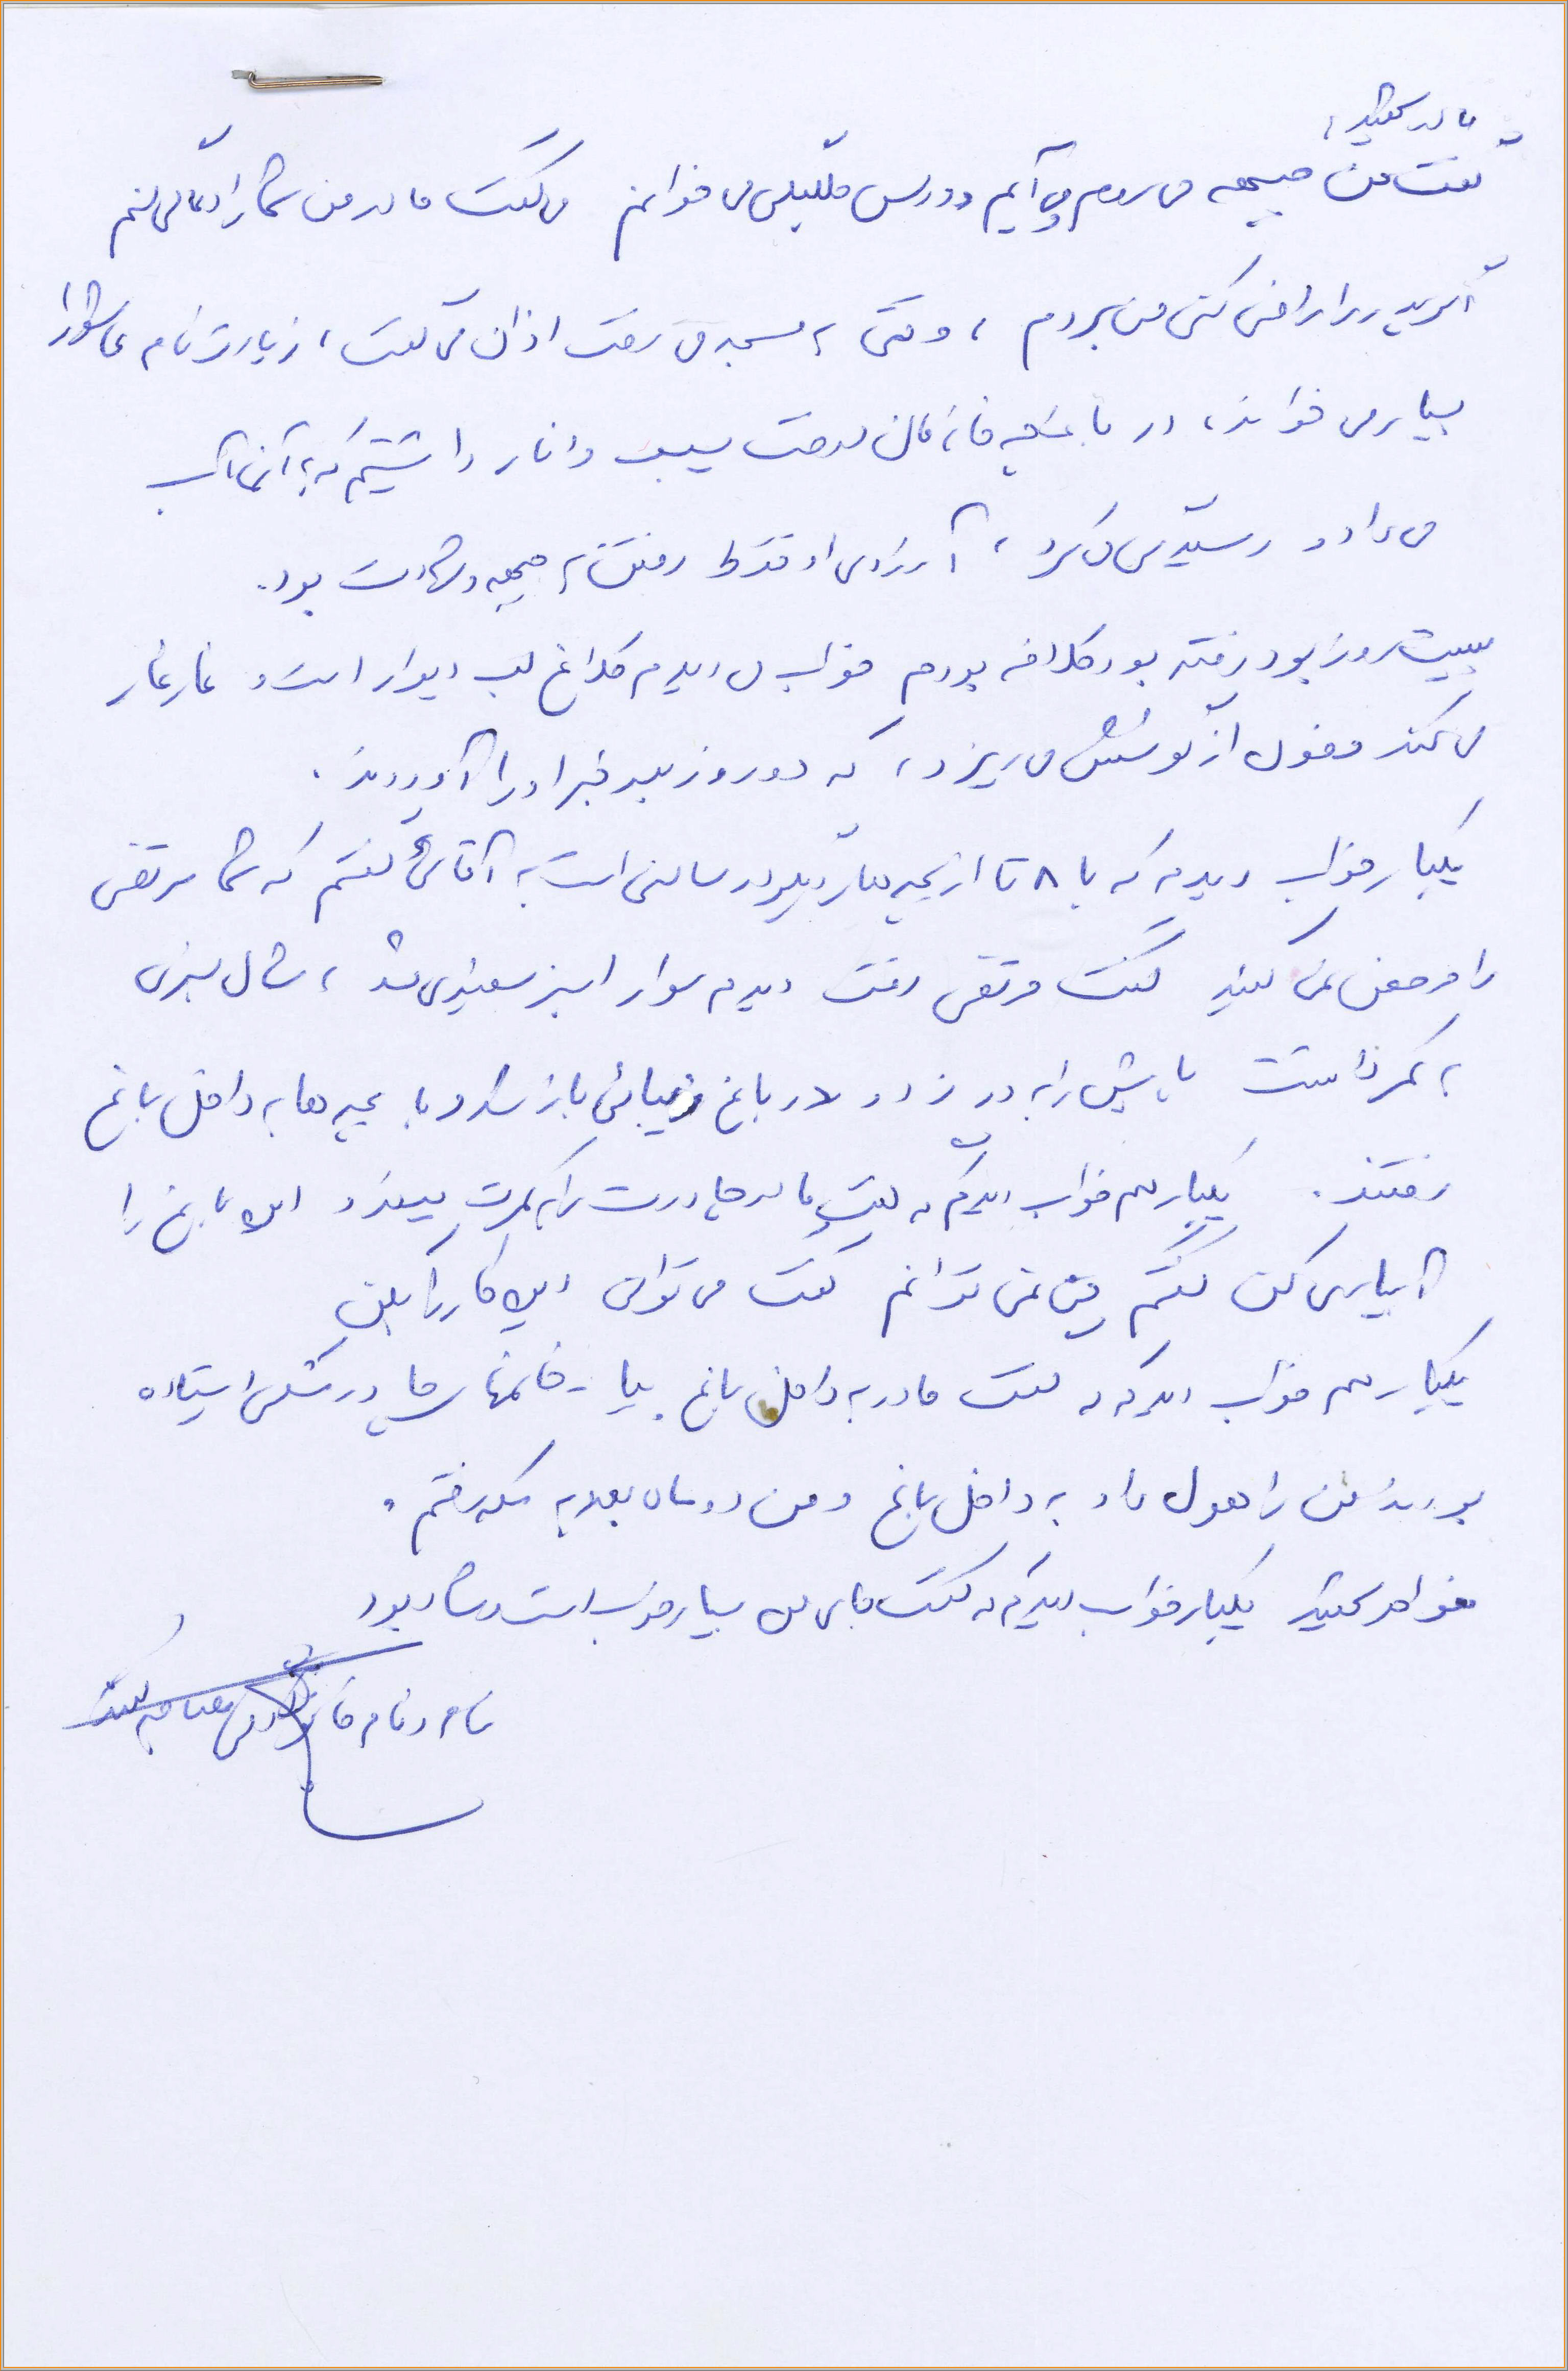 مادر شهید:
گفت من جبهه می‌روم و می‌آیم و درس طلبگی می‌خوانم می‌گفت مادر من شما را دعا می‌کنم
اگر پدر را راضی کنی من بروم، وقتی به مسجد می‌رفت اذان می‌گفت، زیارت نام عاشورا
بسیار می‌خواند، در باغچه خانه‌مان درخت سیب و انار داشتیم که به آنها آب
می‌داد و رسیدگی می‌کرد، آرزوی او فقط رفتن به جبهه و شهادت بود.
بیست روز بود رفته بود کلافه بودم خواب می‌دیدم کلاغ لب دیوار است و غارغار
می‌کند و خون از گوشش می‌ریزد، که دو روز بعد خبر او را آوردند.
یکبار خواب دیدم که با ۸ تا از بچه‌های دیگر در سالنی است به آقائی گفتم که شما مرتضی
را مرخص نمی‌کنید گفت مرتضی رفت دیدم سوار اسب سفیدی شد، شال سبزی
به کمر داشت پایش را به در زد و در باغ زیبائی باز شد و با بچه‌ها به داخل باغ
رفتند. یکبار هم خواب دیدم که گفت مادر چادرت را به کمرت ببند و این باغ را
آبیاری کن گفتم من نمی‌توانم گفت می‌توانی این کار را بکن
یکبار هم خواب دیدم که گفت مادر به داخل باغ بیا - خانمهای چادر مشکی ایستاده
بودند من را هول داد به داخل باغ و من دو سال بعد به مکه رفتم.
خواهر شهید یکبار خواب دیدم که گفت جای من بسیار خوب است و شاد بود
نام و نام خانوادگی مصاحبه کننده